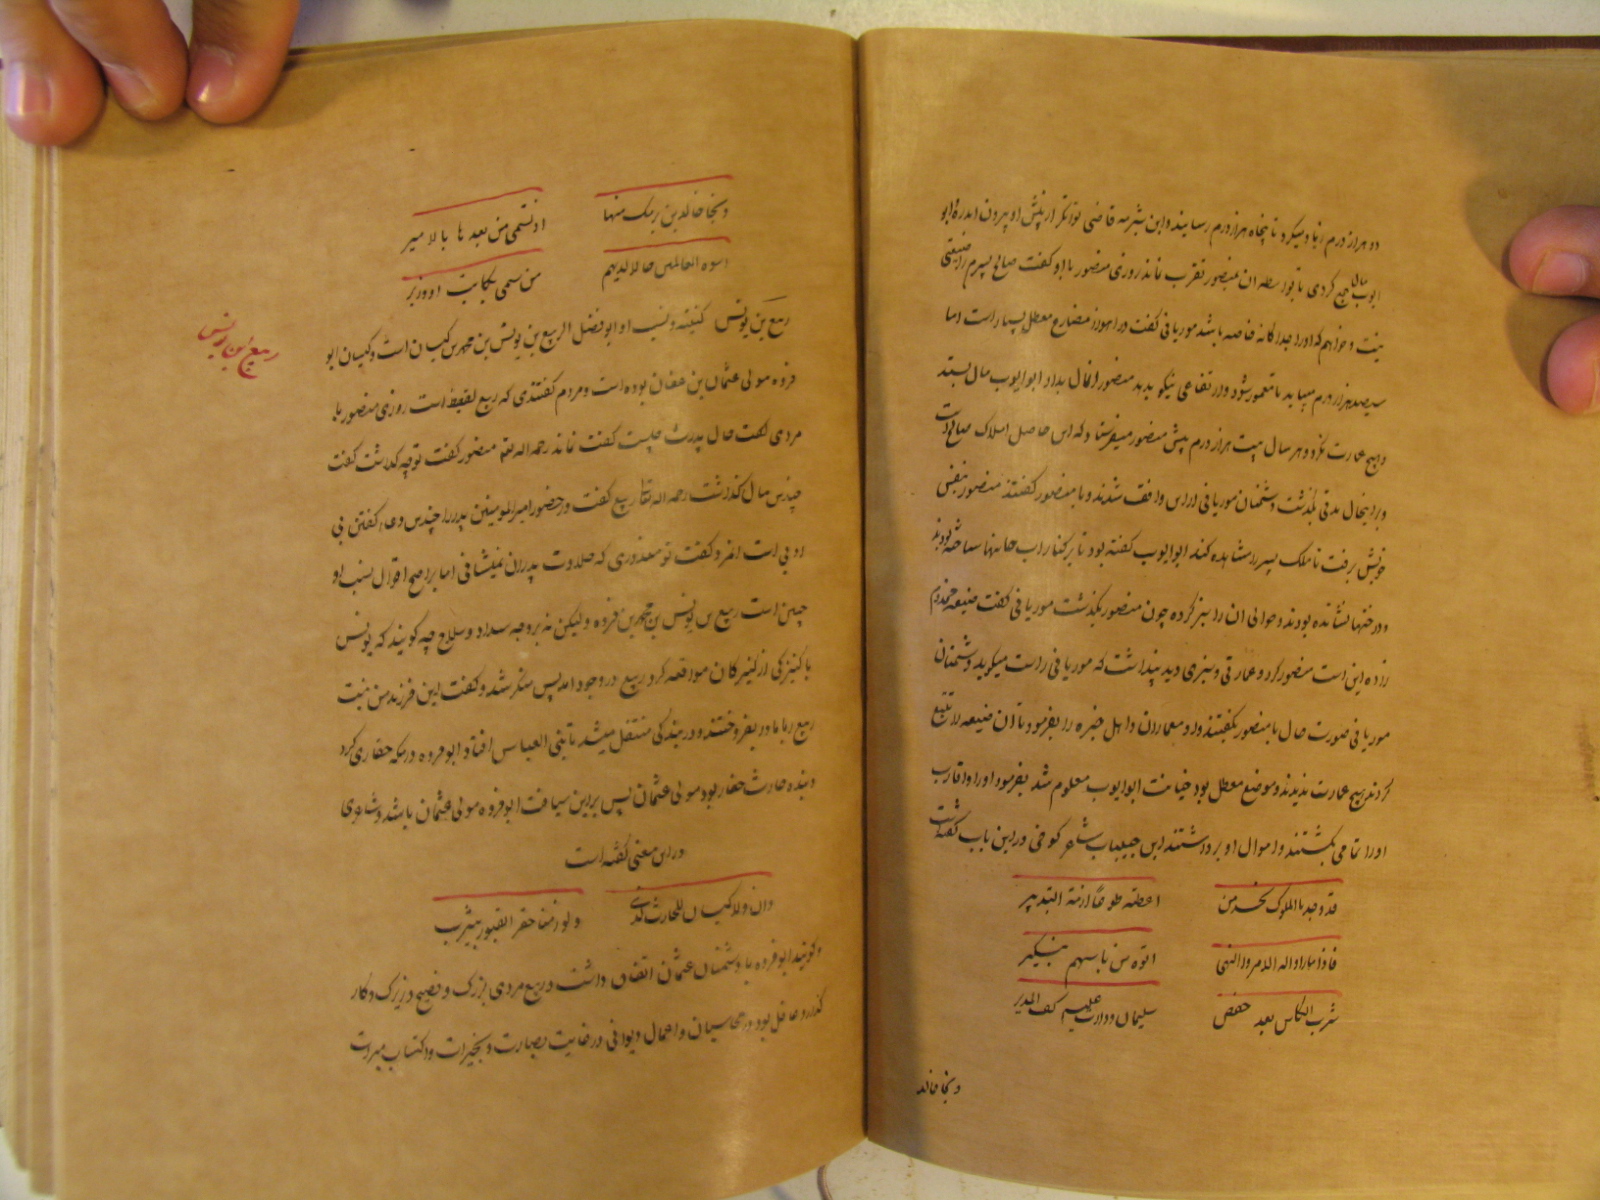 دو هزار درم انبا دمیکرد تا پنجاه هزار درم رسانیند و ابن شبرمه قاضی توانکر از پیش او بیرون امد و ابو
ابوب مالی جمع کردی تا بواسطه ان بمنصور تقرب نماند روزی منصور با او کفت صالح پسرم را ضیعتی
نیت و خواهم که او را جداکانه خاصه باشد موریانی کفت در اهواز مضارع معطل بسیار است اما
سیصد هزار درم میباید تا معمور شود و ارتفاعی نیکو بدید منصور در حال بداد ابو ایوب مال بستد
و هیچ عمارت نکرد و هر سال بیست هزار درم پیش منصور میفرستاد که این حاصل املاک صالح است
و بر اینحال مدتی بکذشت دشمنان موریانی از این واقف شدند و با منصور کفتند منصور بنفس
خویش برفت تا ملک پسر را مشاهده کند ابو ایوب کفته بود تا بر کنار اب خانها ساخته بودند
و درختها نشانده بودند و حوالی ان را سبز کرده چون منصور بکذشت موریانی کفت ضیعه مخدوم
زاده این است منصور کرد و عمارتی و سبزی دید پنداشت که موریانی راست میکوید دشمنان
موریانی صورت حال با منصور بکفتند و او معماران و اهل خبره را بفرمود تا ان ضیعه را تتبع
کردند هیچ عمارت ندیدند و موضع معطل بود خیانت ابو ایوب معلوم شد بفرمود او را و اقارب
او را تمامی بکشتند و اموال او برداشتند ابن حبیبات شاعر کوفی در این باب کفته است
قد وجدنا الملوک تحسد من اعطته طوعا ازمة التدبیر
فاذا ما راوا له الامر و النهی اتوه من باسهم بنکیر
شرب الکاس بعد حفص سلیمان و دارت علیهم کف المدیر
و نجا خالد
و نجا خالد بن برمک منها اذ تسمی من بعدها بالامیر
اسوه العالمین حالا لدیهم من تسمی بکاتب او وزیر
ربیع ابن یونس
ربیع بن یونس کنیته و نسب او ابو فضل الربیع بن یونس بن محمد بن کیسان است و کیسان ابو
فروه مولی عثمان بن عفان بوده است و مردم کفتندی که ربیع لقیط است روزی منصور با
مردی کفت حال پدرت چیست کفت نماند رحمه الله تع منصور کفت تو چه کذاشت کفت
چندین مال کذاشت رحمه الله تعا ربیع کفت در حضور امیر المومنین پدر را چندین دعا کفتن بی
ادبی است انمرد کفت تو معذوری که حلاوت پدران نمیشناسی اما بر اصح اقوال نسب او
چنین است ربیع بن یونس بن محمد بن فروه و لیکن نه بر وجه سداد و صلاح چه کویند که یونس
با کنیزکی از کنیزکان مواقعه کرد ربیع در وجود امد پس منکر شد و کفت این فرزند من نیت
ربیع را با مادر بفروختند و در بندکی منتقل میشد تا ببنی العباس افتاد و ابو فروه در مکه حفاری کرد
و بنده حارث حفار بود مولی عثمان پس بر این سیاقت ابو فروه مولی عثمان باشد و شاعری
در این معنی کفته است
وان ولا کیسان للحارث الذی ولی زمنا حفر القبور بیثرب
و کویند ابو فروه با دشمنان عثمان اتفاق داشت و ربیع مردی بزرک و فصیح و زیرک و کار
کذار و عاقل بود در محاسبان و اعمال دیوانی در غایت بصارت و بخیرات و اکتساب مبرات